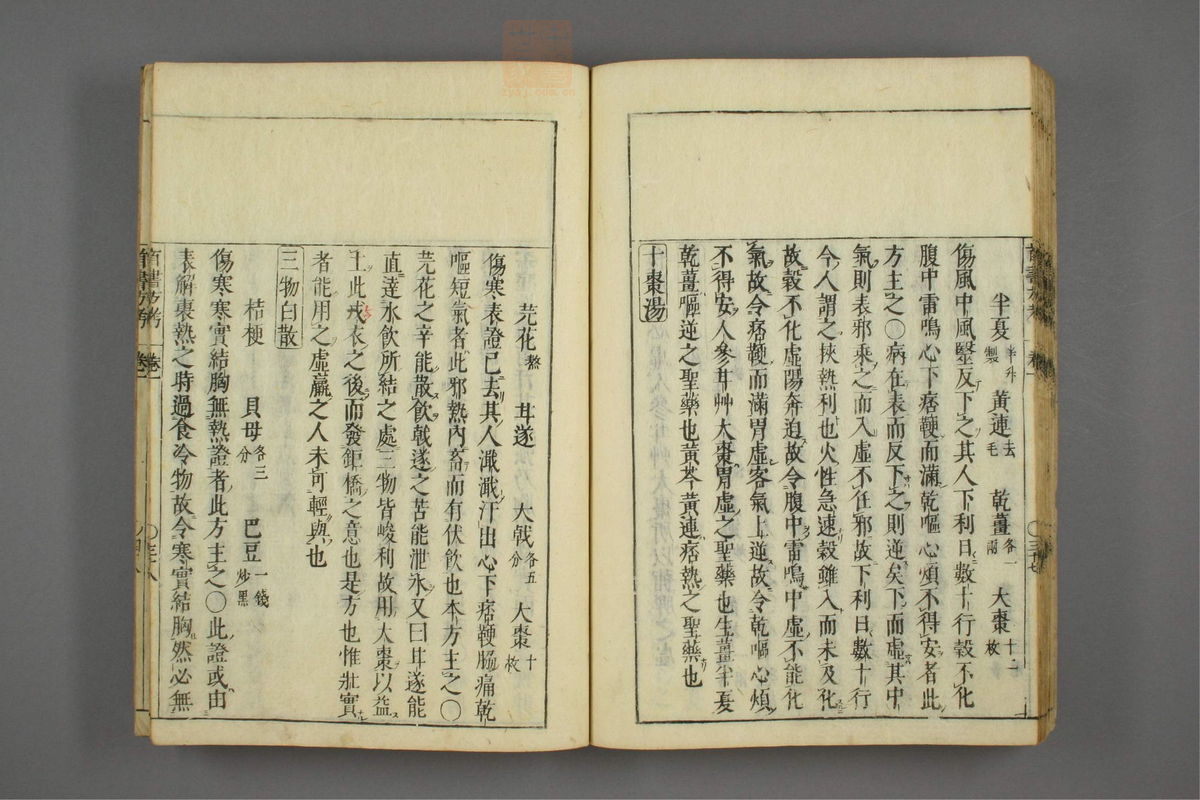 半夏半升製　黃連去毛　乾薑各一兩　大棗十二枚
傷風中風醫反下之其人下利日數十行穀不化
腹中雷鳴心下痞鞕而滿乾嘔心煩不得安者此
方主之〇病在表而反下之則逆矣下而虛其中
氣則表邪乘之而入虛不任邪故下利日數十行
今人謂之挾熱利也火性急速穀雖入而未及化
故穀不化虛陽奔迫故令腹中雷鳴中虛不能化
氣故令痞鞕而滿胃虛客氣上逆故令乾嘔心煩
不得安人參甘艸大棗胃虛之聖藥也生薑半夏
乾薑嘔逆之聖藥也黃芩黃連痞熱之聖藥也
十棗湯
芫花熬　甘遂　大戟各五分　大棗十枚
傷寒表證已去其人濈濈汗出心下痞鞕脇痛乾
嘔短氣者此邪熱內畜而有伏飲也本方主之〇
芫花之辛能散飲戟遂之苦能泄水又曰甘遂能
直達水飲所結之處三物皆峻利故用大棗以益
土此戎衣之後而發鉅橋之意也是方也惟壯實
者能用之虛羸之人未可輕與也
三物白散
桔梗　貝母各三分　巴豆一錢炒黑
傷寒寒實結胸無熱證者此方主之〇此證或由
表解裏熱之時過食冷物故令寒實結胸然必無